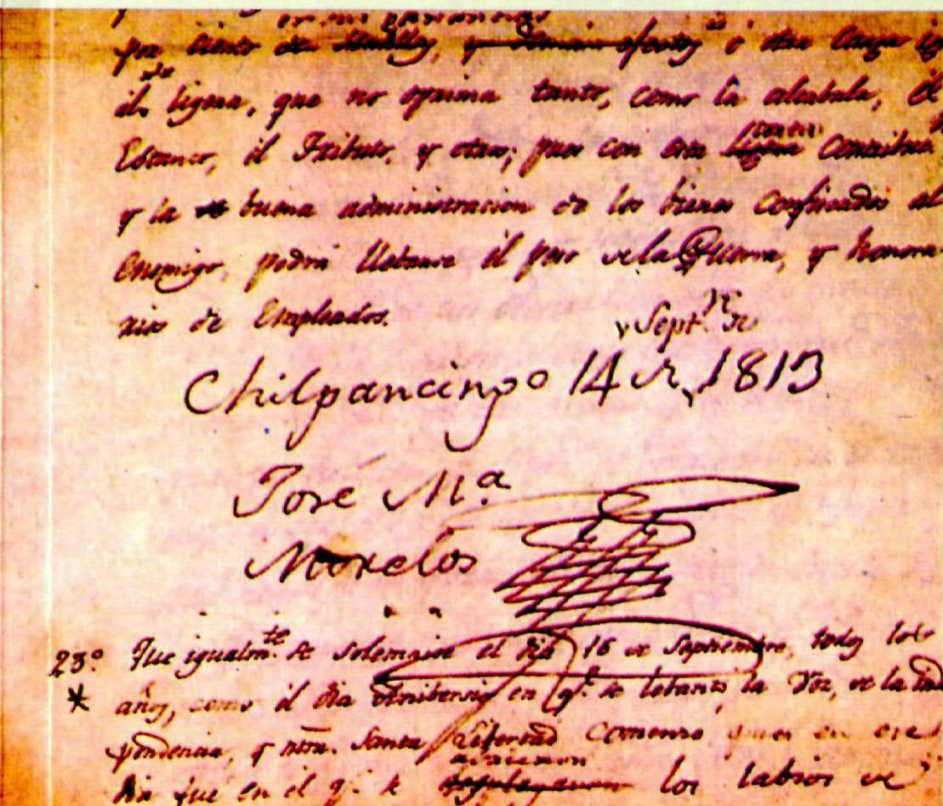 en sus ganancias
por ciento de semillas, y demas efectos ú otra carga igu
de
ilo ligera, que no oprima tanto, como la alcabala, el
Estanco, el Tributo, y otros; pues con esta contribu
y la buena administracion de los bienes confiscados al
Enemigo, podrá llebarse el peso de la Guerra, y honora
rios de Empleados.
Sept.re de
Chilpancingo 14 de 1813
José M.a
Morelos
23.o Que igualm.te se solemnise el dia 16 de Septiembre, todos los
* años, como el dia Anibersario en q.e se lebantó la Voz, de la Inde
pendencia, y ntra. Santa Libertad comenzó, pues en ese
dia fue en el q.e se los labios de